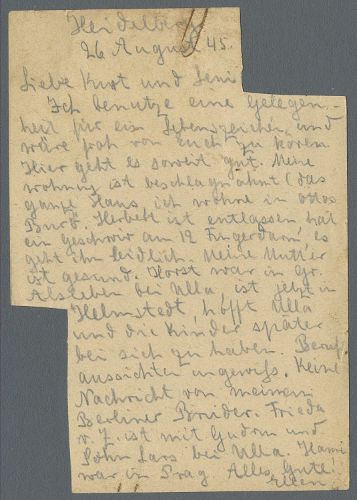 Heidelberg
26 August 45.
Liebe Kurt und Leni
Ich benutze eine Gelegen-
heit für ein Lebenszeichen und
wäre froh von euch zu hören.
Hier geht es soweit gut. Meine
wohnung ist beschlagnahmt (das
ganze Haus, ich wohne in Ottos
Büro. Herbert ist entlassen hat
ein Geschwür am 12 Fingerdarm, es
geht ihm leidlich. Meine Mutter
ist gesund. Horst war in Gr.
Alsleben bei Ulla, ist jetzt in
Helmstedt, hofft Ulla
und die Kinder später
bei sich zu haben. Beruf
aussichten ungewiss. Keine
Nachricht von meinem
Berliner Bruder. Frieda
v. J. ist mit Gudrun und
Sohn Lars bei Ulla.
war in Prag Alles Gute!
Ellen